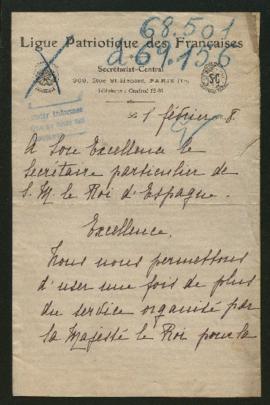 68.501
d 69.156
Ligue Patriotique des Françaises
Secrétariat-Central
Rue St-Honoré, PARIS
Téléphone : Central
1 février 8.
A Son Excellence le
Secrétaire particulier de
S. M. le Roi d'Espagne.
Excellence,
Nous nous permettons
d'user une fois de plus
du service organisé par
Sa Majesté le Roi pour la